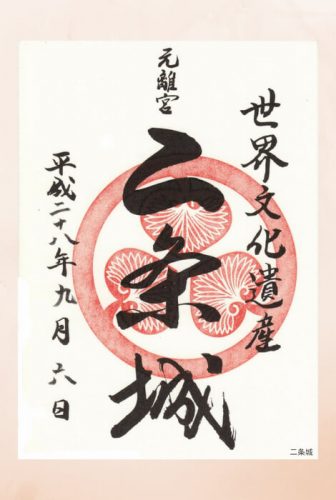 世界文化遺産
元離宮
二条城
平成二十八年九月六日
二条城